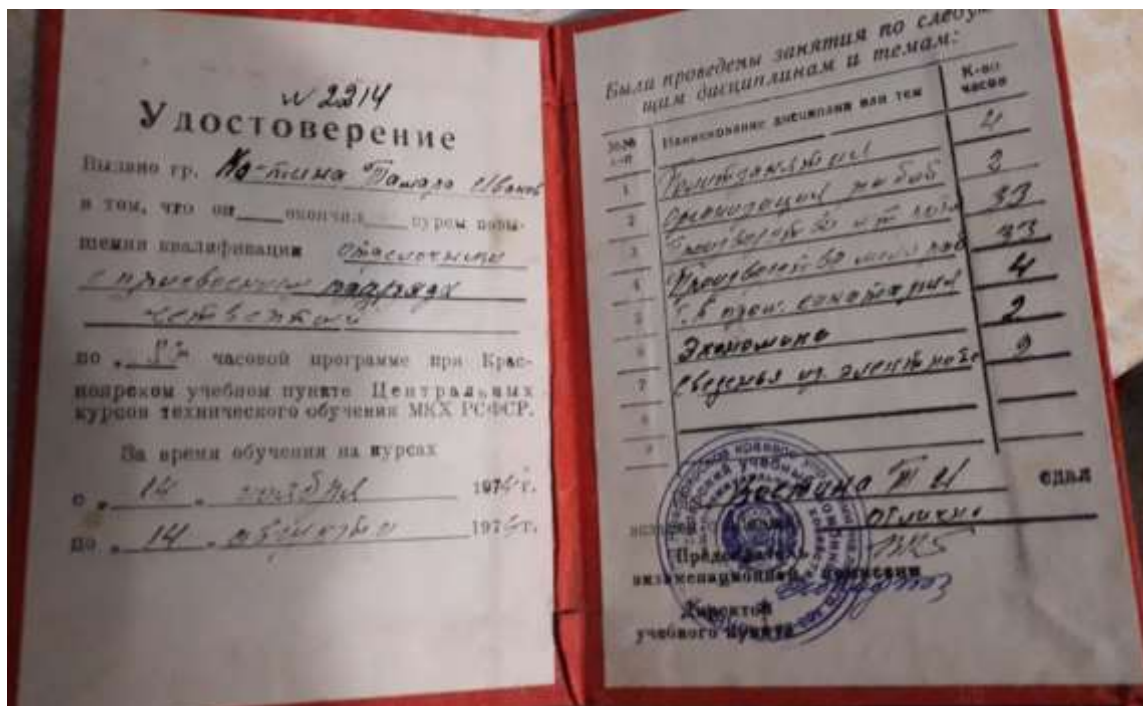 № 2214
Удостоверение
Выдано гр. Ко-тина Тамара Иванов
в том, что он окончил курсы повы-
шения квалификации
с присвоением разряда
по часовой программе при Крас-
ноярском учебном пункте Центральных
курсов технического обучения МКХ РСФСР.
За время обучения на курсах
с „ 14 „ 197 г.
по „ 14 „ 197 г.
Были проведены занятия по следую-
щим дисциплинам и темам:
№№ п-п Наименование дисциплин или тем К-во часов
1 Политзанятия 4
2 Организация работ 2
3 33
4 Производство 33
5 санитария 4
6 Экономика 2
7 Сведенья из 9
8
9
Костина Т И сдал
отлично
Председатель
экзаменационной комиссии
Директор
учебного пункта